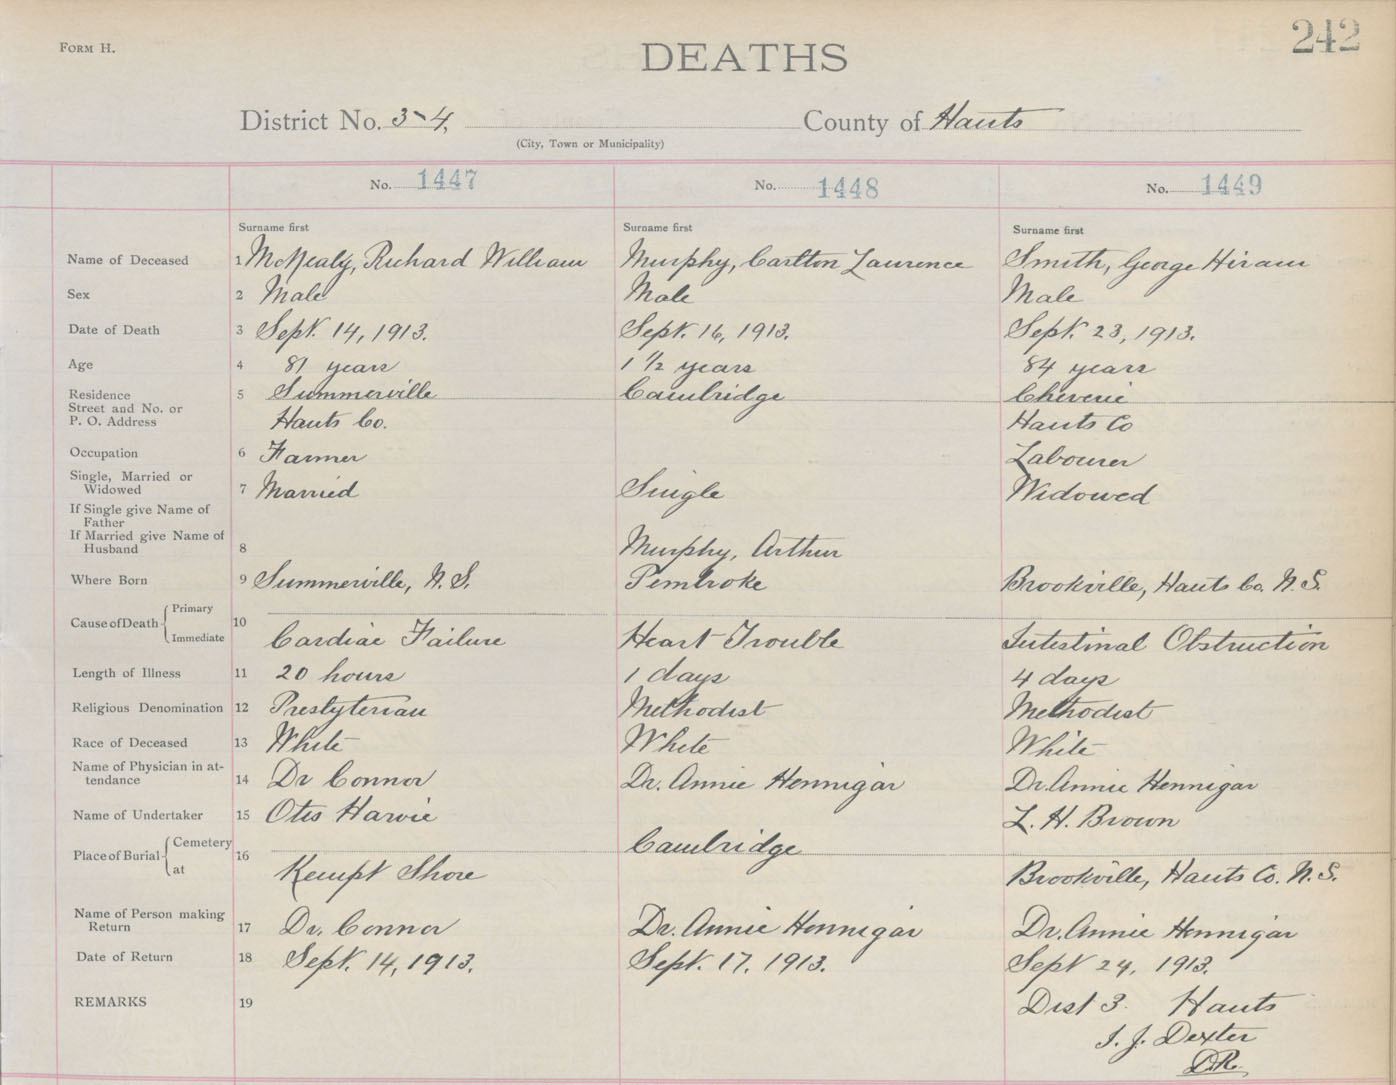 242
FORM H.
DEATHS
District No. 3-4, County of Hants
(City, Town or Municipality)
No. 1447 No. 1448 No. 1449
Surname first Surname first Surname first
Name of Deceased 1 McNealy, Richard William Murphy, Carlton Laurence Smith, George Hiram
Sex 2 Male Male Male
Date of Death 3 Sept. 14, 1913. Sept. 16, 1913. Sept. 23, 1913.
Age 4 81 years 1 1/2 years 84 years
Residence 5 Summerville Cambridge Cheverie
Street and No. or
P. O. Address Hants Co. Hants Co
Occupation 6 Farmer Labourer
Single, Married or
Widowed 7 Married Single Widowed
If Single give Name of
Father
If Married give Name of
Husband 8 Murphy, Arthur
Where Born 9 Summerville, N.S. Pembroke Brookville, Hants Co. N.S.
Cause of Death Primary
Immediate 10 Cardiac Failure Heart Trouble Intestinal Obstruction
Length of Illness 11 20 hours 1 days 4 days
Religious Denomination 12 Presbyterian Methodist Methodist
Race of Deceased 13 White White White
Name of Physician in at-
tendance 14 Dr Connor Dr. Annie Hennigar Dr. Annie Hennigar
Name of Undertaker 15 Otis Harvie L. H. Brown
Place of Burial Cemetery 16 Cambridge
at Kempt Shore Brookville, Hants Co. N.S.
Name of Person making
Return 17 Dr. Connor Dr. Annie Hennigar Dr. Annie Hennigar
Date of Return 18 Sept. 14, 1913. Sept. 17. 1913. Sept 24, 1913.
REMARKS 19 Dist 3. Hants
I. J. Dexter
D.R.